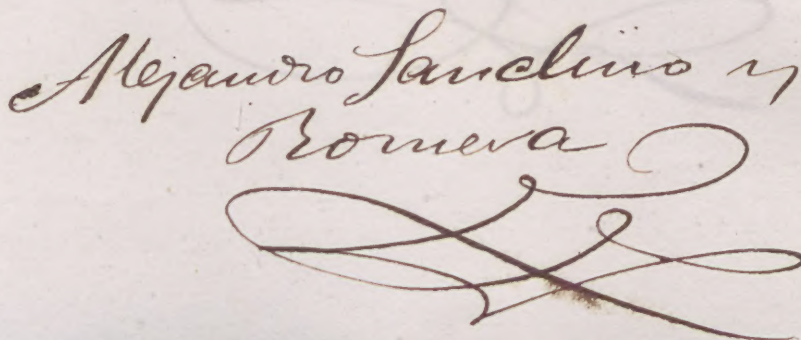 Alejandro Sanchino y
Romera